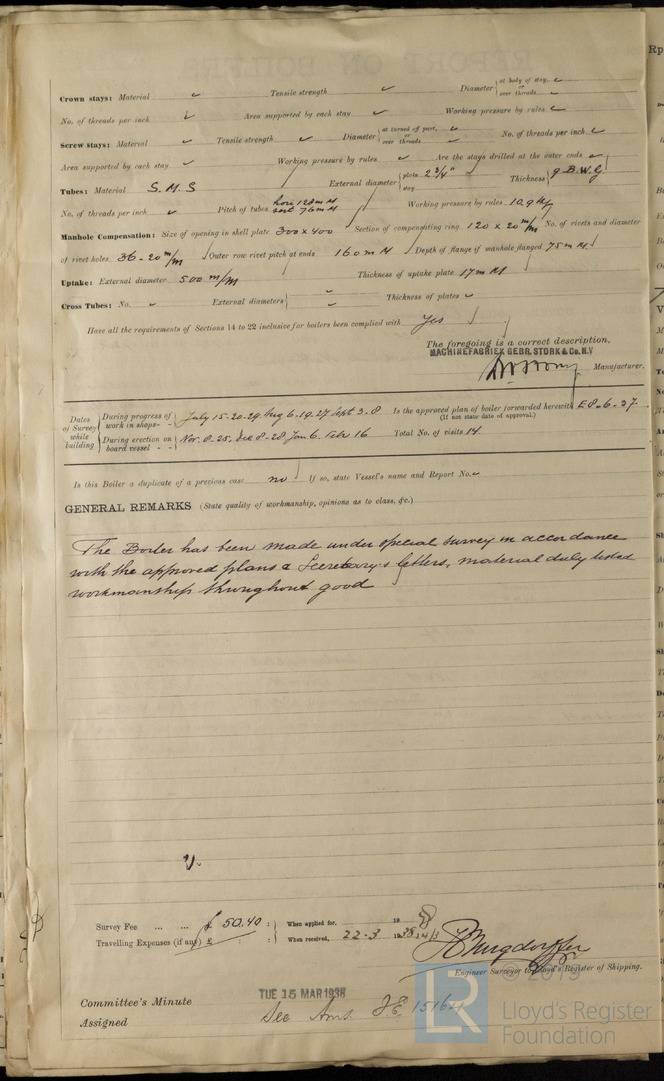 Crown stays: Material ✓ Tensile strength ✓ Diameter { at body of stay, ✓ or over threads ✓
No. of threads per inch ✓ Area supported by each stay ✓ Working pressure by rules ✓
Screw stays: Material ✓ Tensile strength ✓ Diameter { at turned off part, ✓ or over threads ✓ No. of threads per inch ✓
Area supported by each stay ✓ Working pressure by rules ✓ Are the stays drilled at the outer ends ✓
Tubes: Material S.M.S External diameter { plain 2 3/4" stay Thickness 9 B.W.G
No. of threads per inch ✓ Pitch of tubes hori 128 m M vert 76 m M Working pressure by rules
Manhole Compensation: Size of opening in shell plate 300 x 400 Section of compensating ring 120 x 20 m/m No. of rivets and diameter
of rivet holes 36 - 20 m/m Outer row rivet pitch at ends 160 m M Depth of flange if manhole flanged 75 m M
Uptake: External diameter 500 m/m Thickness of uptake plate 17 m M
Cross Tubes: No. ✓ External diameters { ✓ ✓ Thickness of plates ✓
Have all the requirements of Sections 14 to 22 inclusive for boilers been complied with Yes
The foregoing is a correct description,
MACHINEFABRIEK GEBR. STORK & Co. N.V
Manufacturer.
Dates of Survey while building
During progress of work in shops - - July 15-20-29 Aug 6-19-27 Sept 3-8 Is the approved plan of boiler forwarded herewith E 8-6-37
(If not state date of approval.)
During erection on board vessel - - Nov. 8-25, Dec 8-28 Jan 6. Febr 16 Total No. of visits 14.
Is this Boiler a duplicate of a previous case no If so, state Vessel's name and Report No. ✓
GENERAL REMARKS (State quality of workmanship, opinions as to class, &c.)
The Boiler has been made under special survey in accordance
with the approved plans & Secretary's letters, material duly tested
workmanship throughout good
Survey Fee ... ... £ 50.40 : When applied for, 19
Travelling Expenses (if any) £ : : When received, 22-3 1938
Engineer Surveyor to Lloyd's Register of Shipping.
Committee's Minute TUE 15 MAR 1938
Assigned See Ams. F.E. 15164
LR © 2019
Lloyd's Register
Foundation